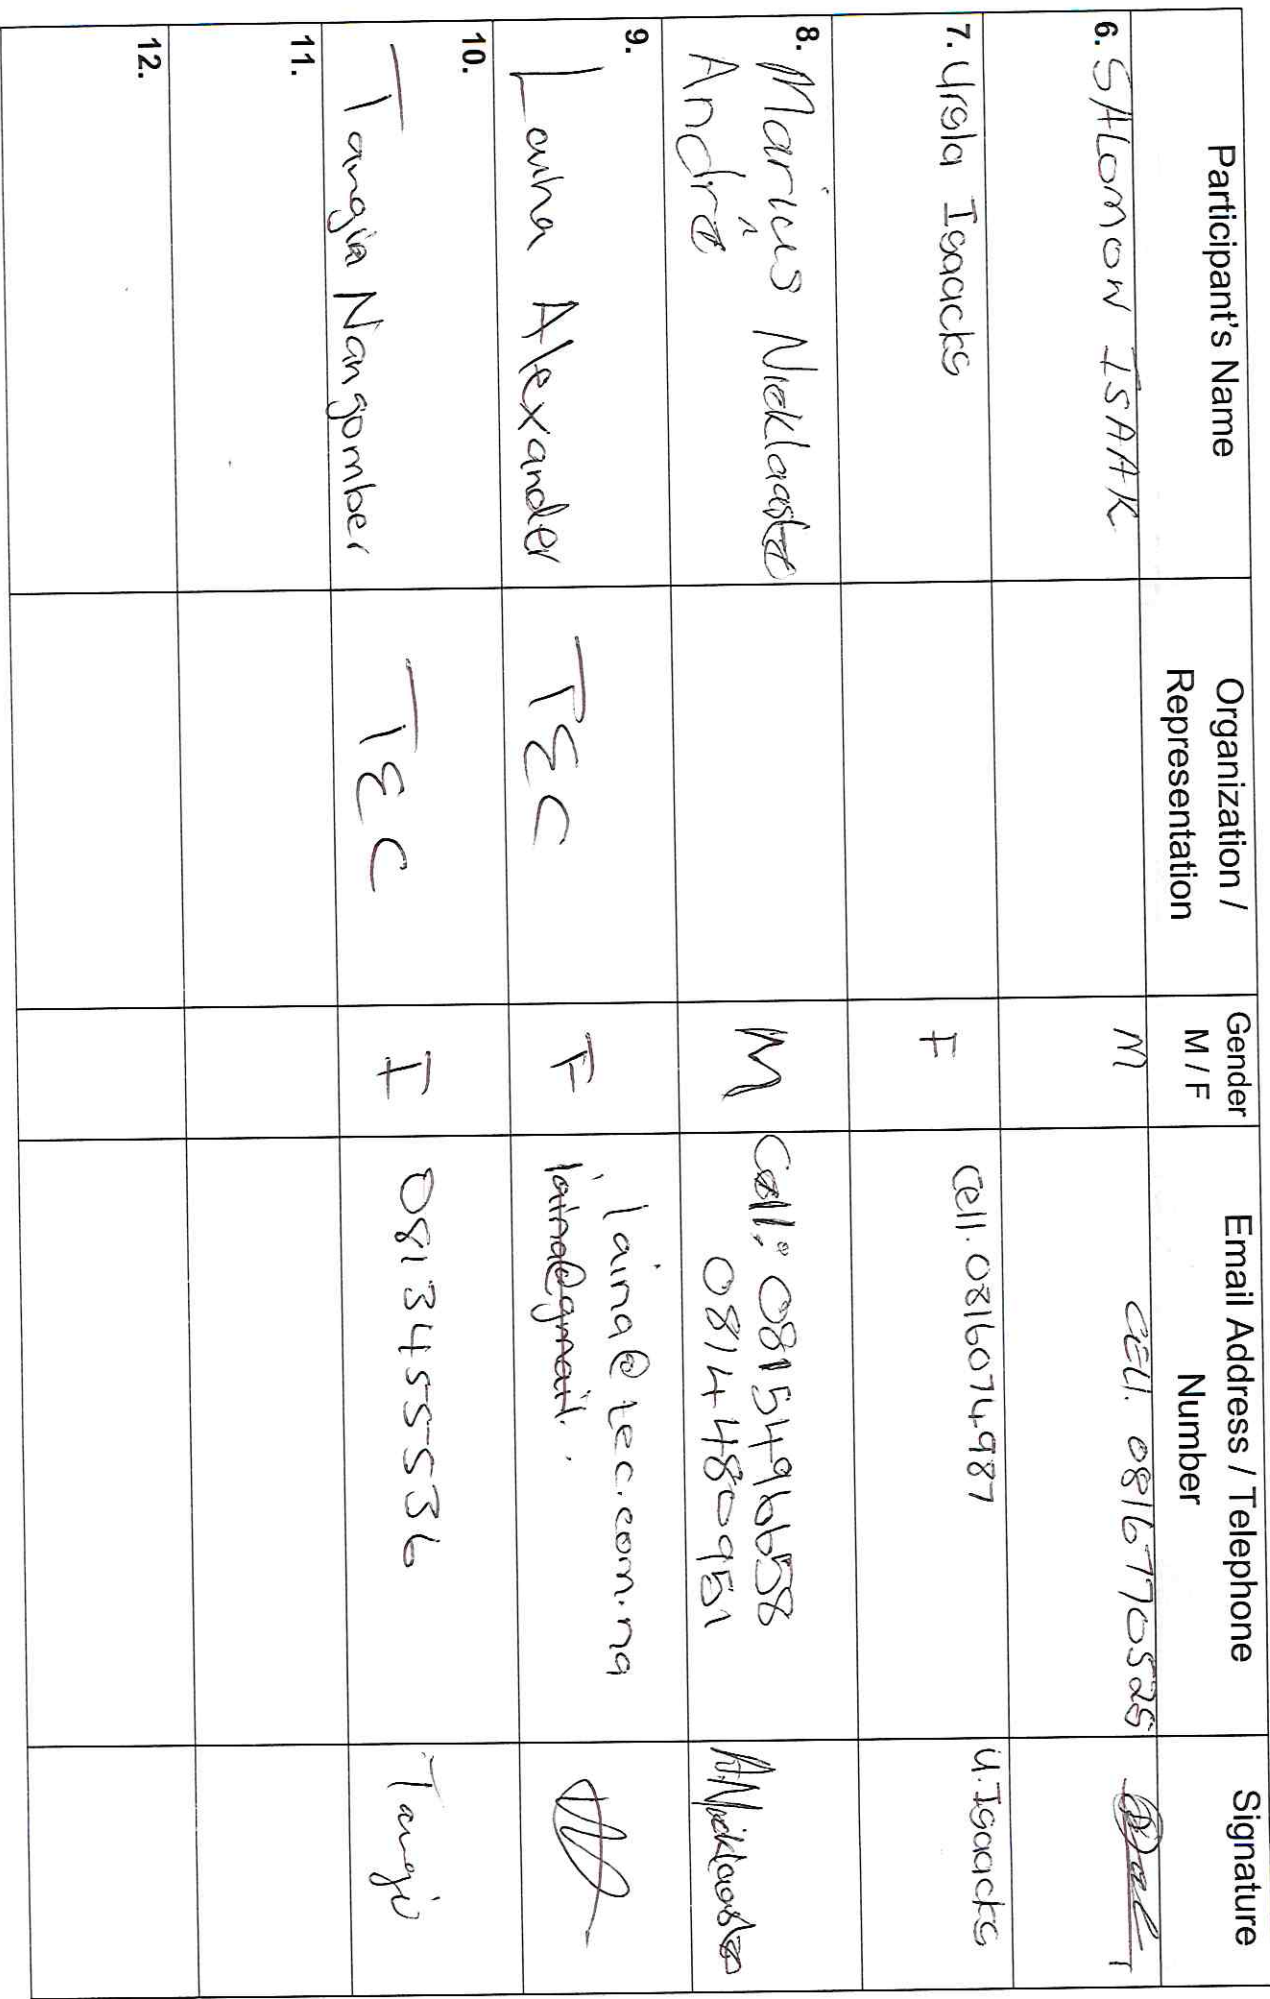 Participant's Name
Organization /
Representation
Gender
M / F
Email Address / Telephone
Number
Signature
6. SALOMON ISAAK
M
CELL. 0816770525
7. Ursla Isaacks
F
Cell. 0816074987
U. Isaacks
8. Marius Nieklaaste
Andre
M
Cell: 0815496658
0814480951
9.
Laina Alexander
TEC
F
laina@tec.com.na
laina@gmail.
10.
Tangia Nangombe
TEC
F
0813455536
11.
12.